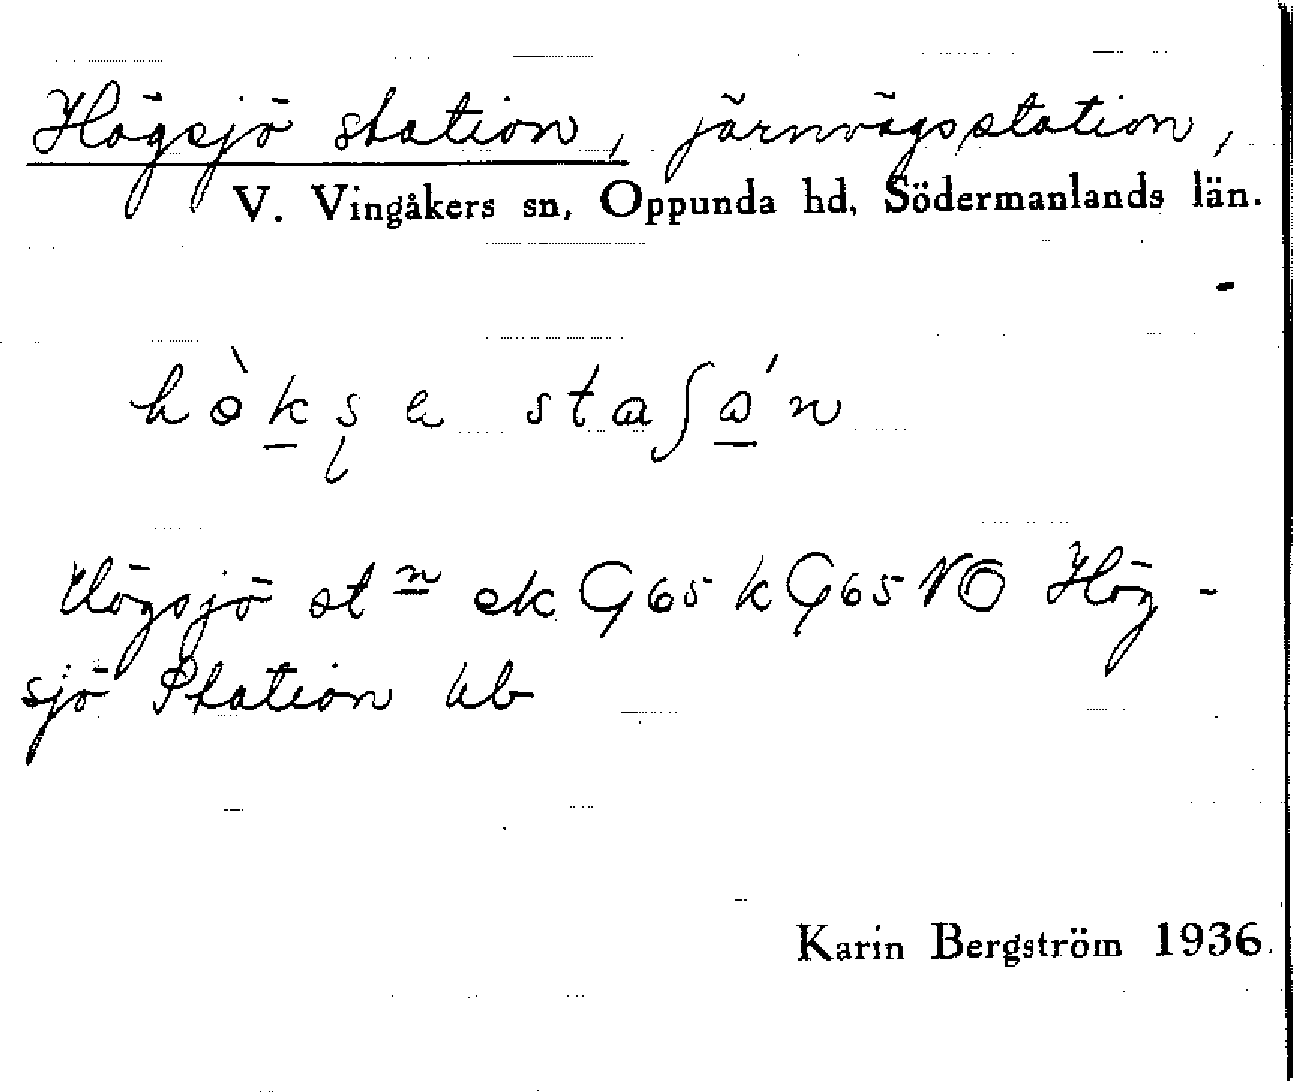 Högsjö station, järnvägsstation,
V. Vingåkers sn, Oppunda hd, Södermanlands län.
stn ek G65 k G65 NO Hög-
sjö Station
Karin Bergström 1936.